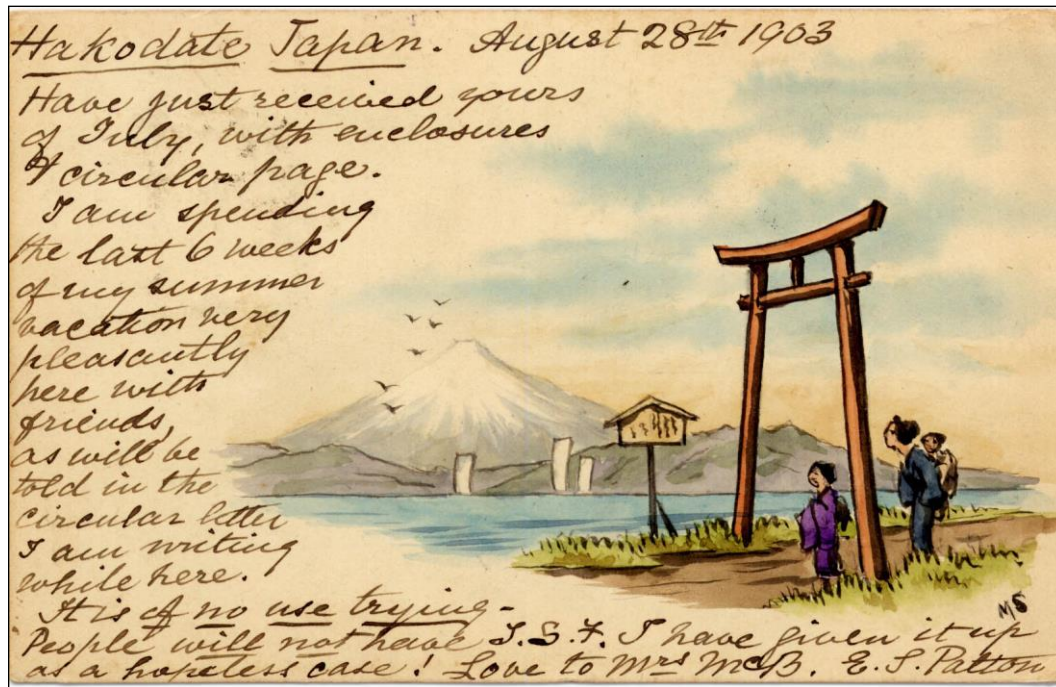 Hakodate Japan. August 28th 1903
Have just received yours
of July, with enclosures
& circular page.
I am spending
the last 6 weeks
of my summer
vacation very
pleasantly
here with
friends,
as will be
told in the
circular letter
I am writing
while here.
It is of no use trying-
People will not have I.S.F. I have given it up
as a hopeless case! Love to Mrs McB. E. S. Patton
MS